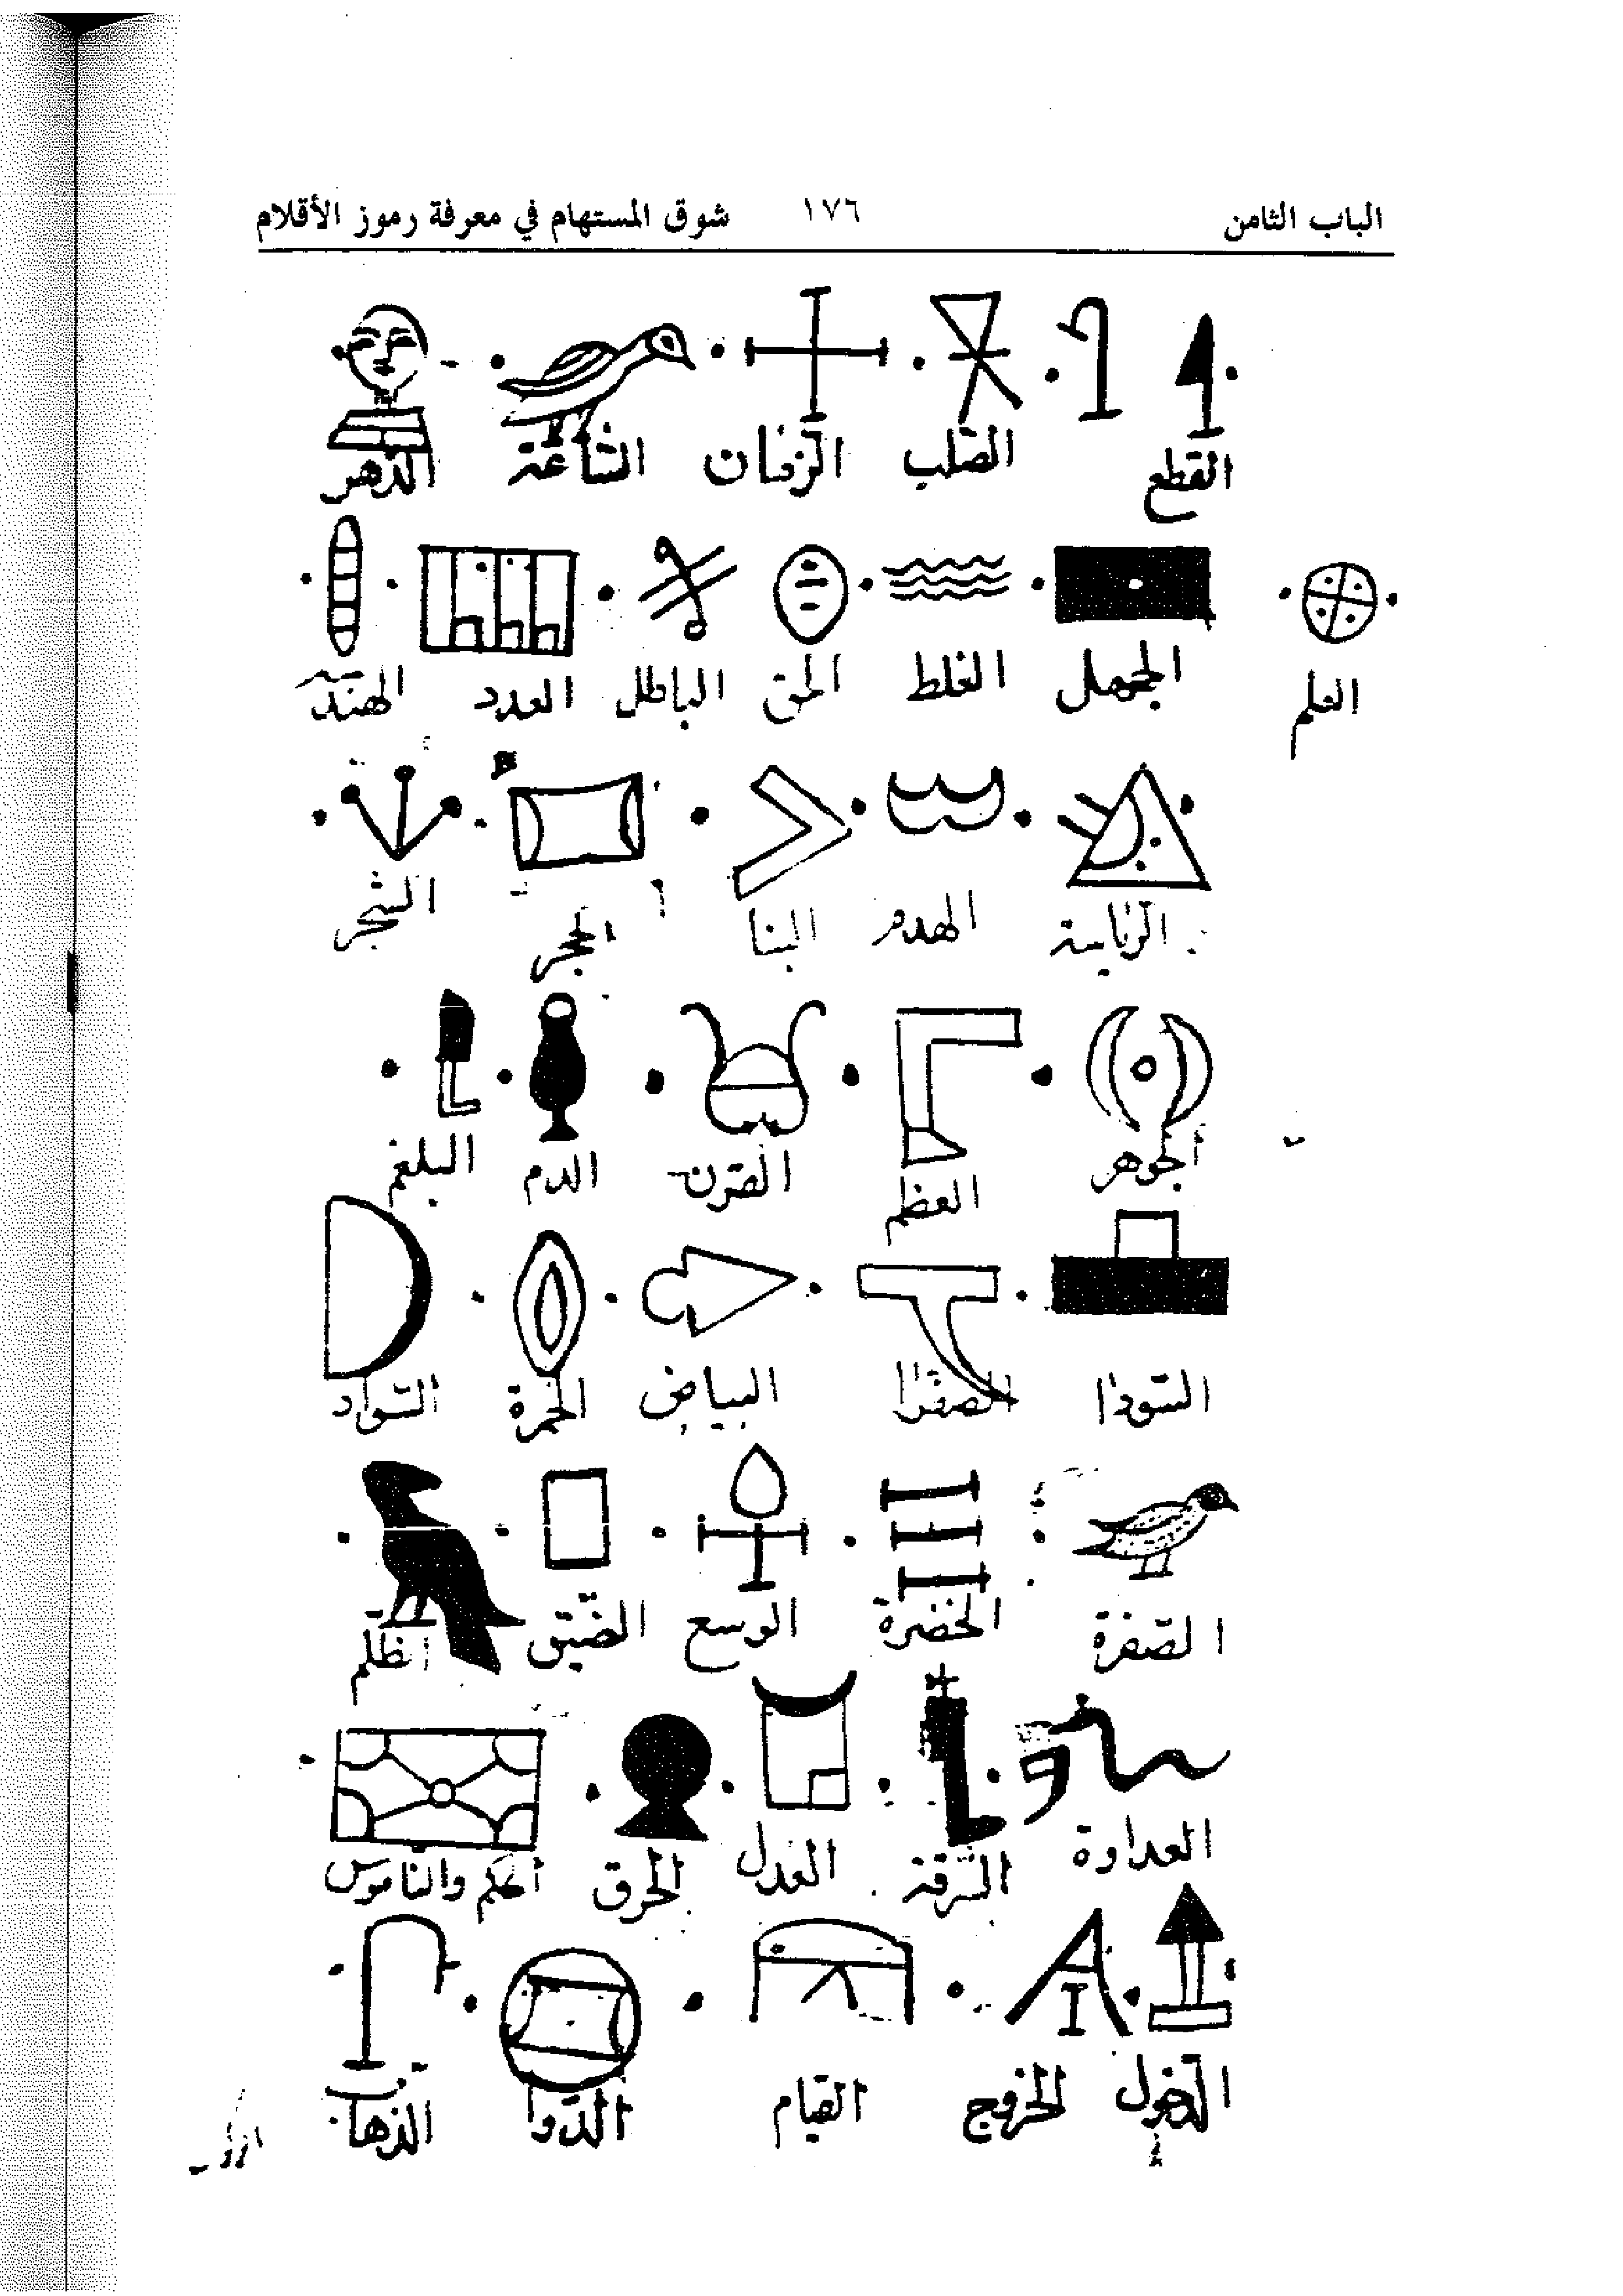 الباب الثامن ١٧٦ شوق المستهام في معرفة رموز الأقلام
القطع الصّلب الزمان السّاعة الدّهر
العلم الجهل الغلط الحق الباطل العدد
الرّياسة الهدم البنا الحجر الشّجر
الجوهر العظم القرن الدم البلغم
السّودا الصفرا البياض الحمرة السّواد
الصّفرة الخضرة الوسع الضّيق الظلم
العداوة السّرقة العدل الحرق الحكم والنّاموس
الدّخول الخروج القيام الدّوا